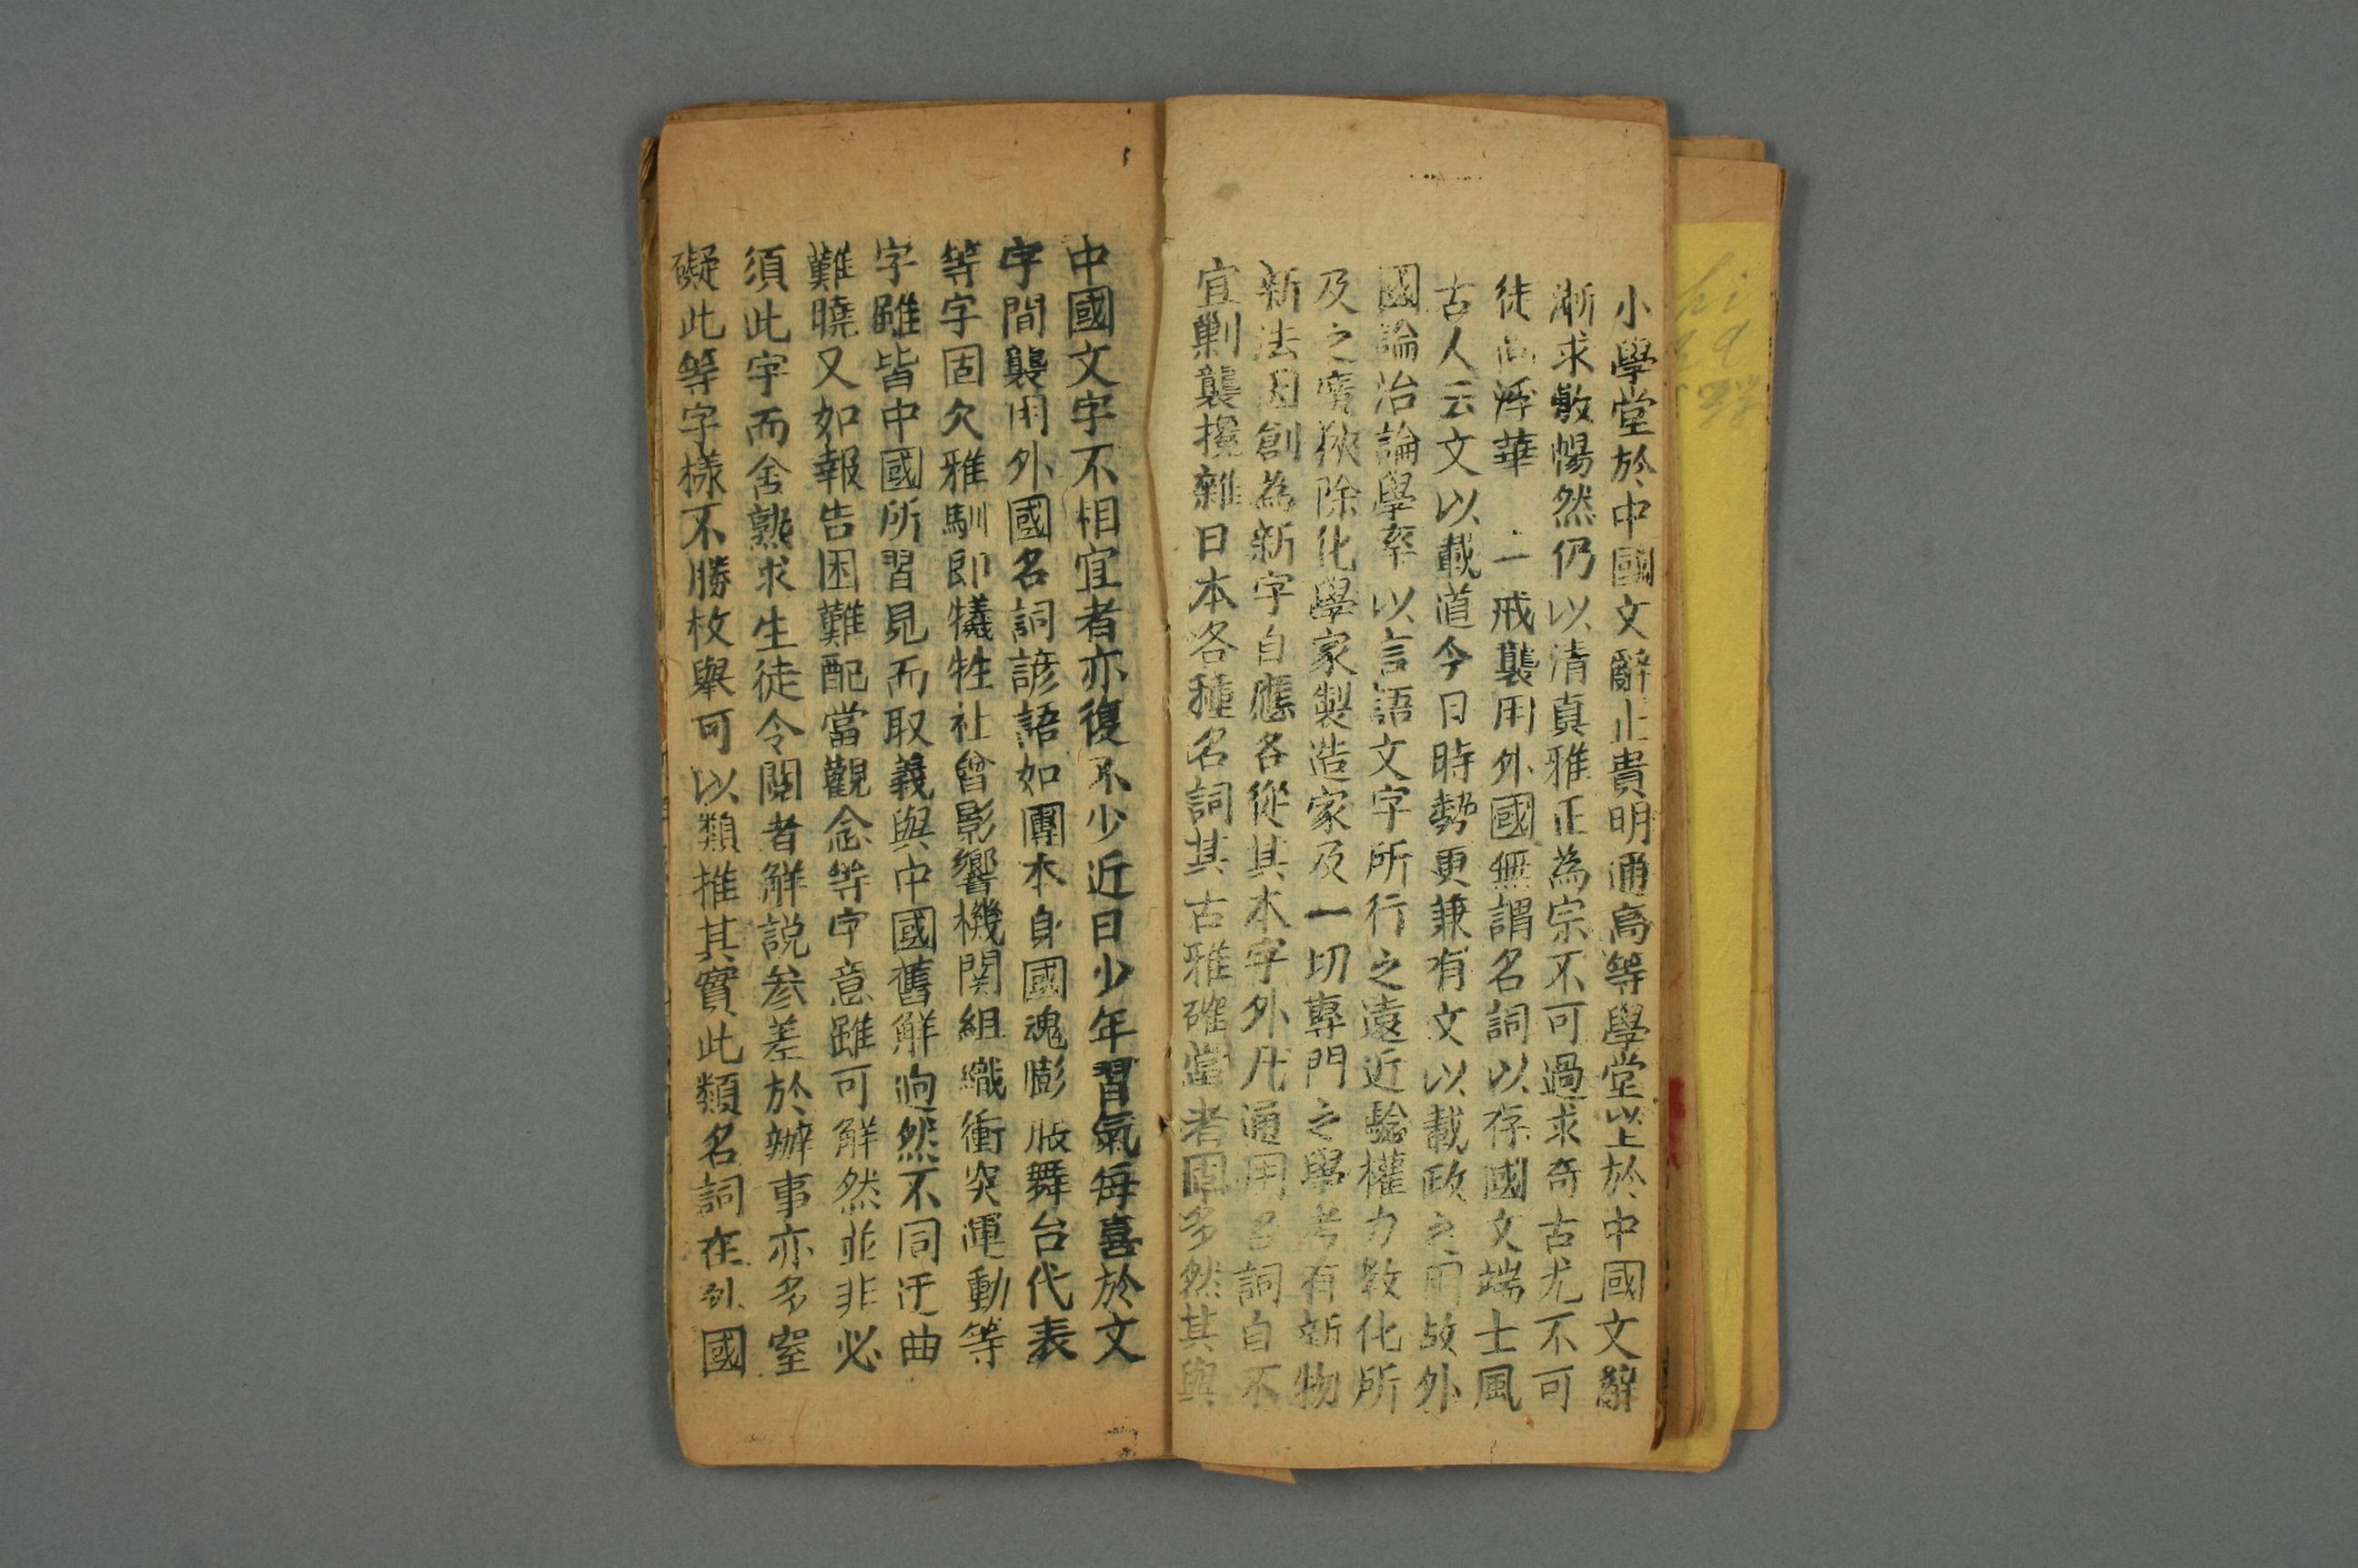 小學堂於中國文辭止貴明通高等學堂以上於中國文辭
漸求敷暢然仍以清真雅正為宗不可過求奇古尤不可
徒尚浮華 一戒襲用外國無謂名詞以存國文端士風
古人云文以載道今日時勢更兼有文以載政之用故外
國論治論學率以言語文字所行之遠近驗權力教化所
及之廣狹除化學家製造家及一切專門之學考有新物
新法因創為新字自應各從其本字外凡通用名詞自不
宜剿襲攙雜日本各種名詞其古雅確當者固多然其與
中國文字不相宜者亦復不少近日少年習氣每喜於文
字間襲用外國名詞諺語如團本自國魂膨脹舞台代表
等字固欠雅馴即犧牲社曾影響機関組織衝突運動等
字雖皆中國所習見而取義與中國舊解迥然不同迂曲
難曉又如報告困難配當觀念等字意雖可解然並非必
須此字而舍熟求生徒令閱者解説参差於辦事亦多窒
礙此等字樣不勝枚舉可以類推其實此類名詞在外國